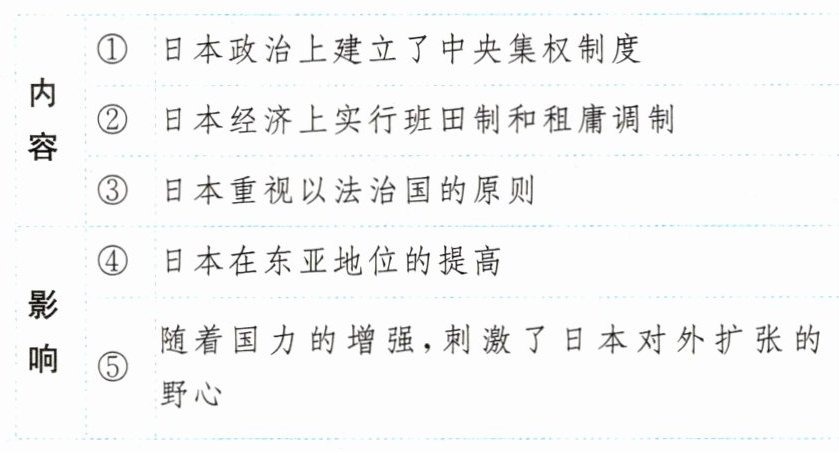 内容
① 日本政治上建立了中央集权制度
② 日本经济上实行班田制和租庸调制
③ 日本重视以法治国的原则
影响
④ 日本在东亚地位的提高
⑤ 随着国力的增强，刺激了日本对外扩张的
野心